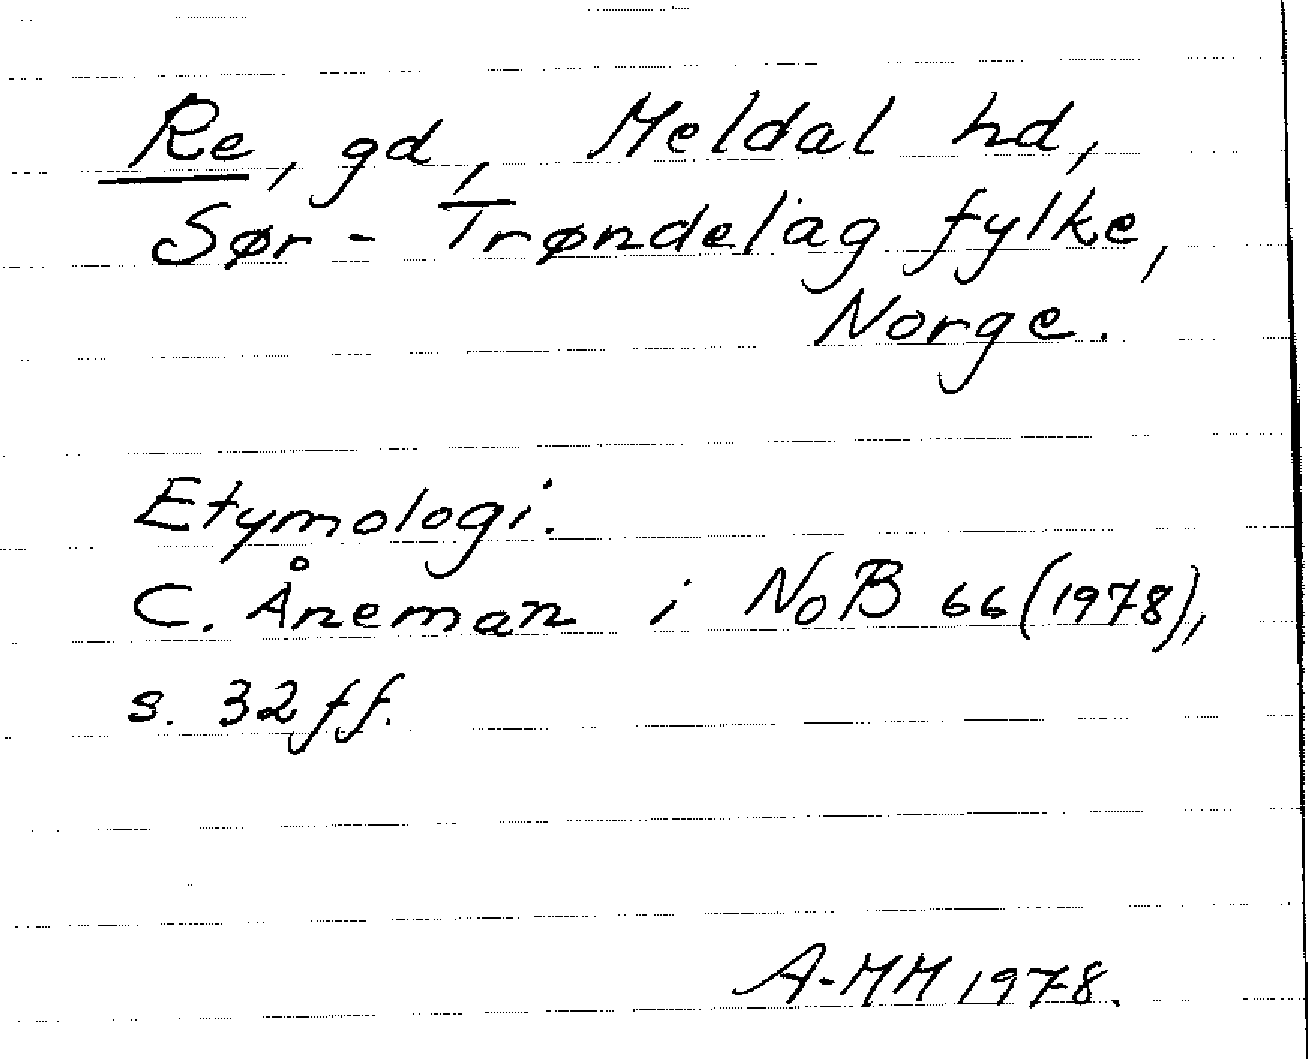 Re, gd, Meldal hd,
Sør-Trøndelag fylke,
Norge.
Etymologi.
C. Åneman i NoB 66 (1978),
s. 32 ff.
A-MM 1978.